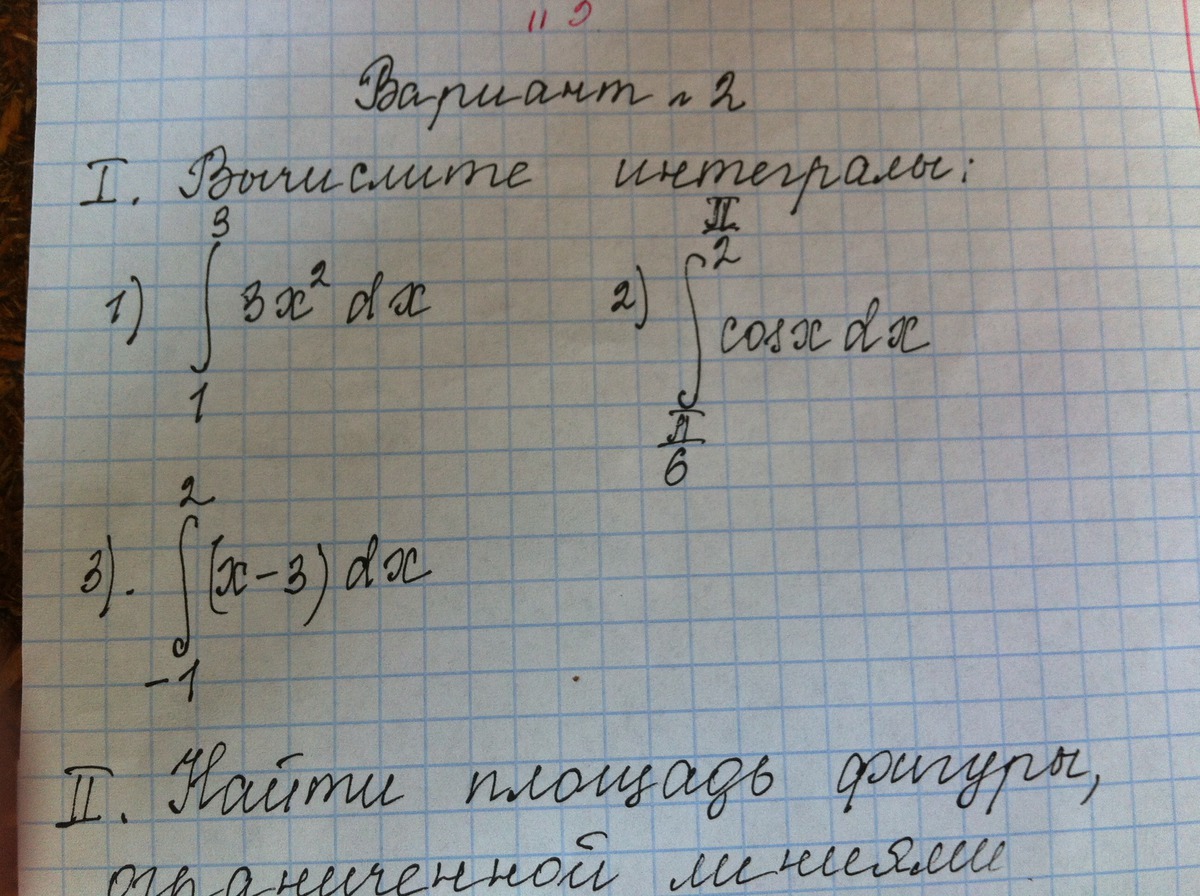 Вариант № 2
I. Вычислите интегралы:
1) ∫₁³ 3x² dx 2) ∫_{π/6}^{π/2} cosx dx
3). ∫₋₁² (x-3) dx
II. Найти площадь фигуры,
ограниченной линиями